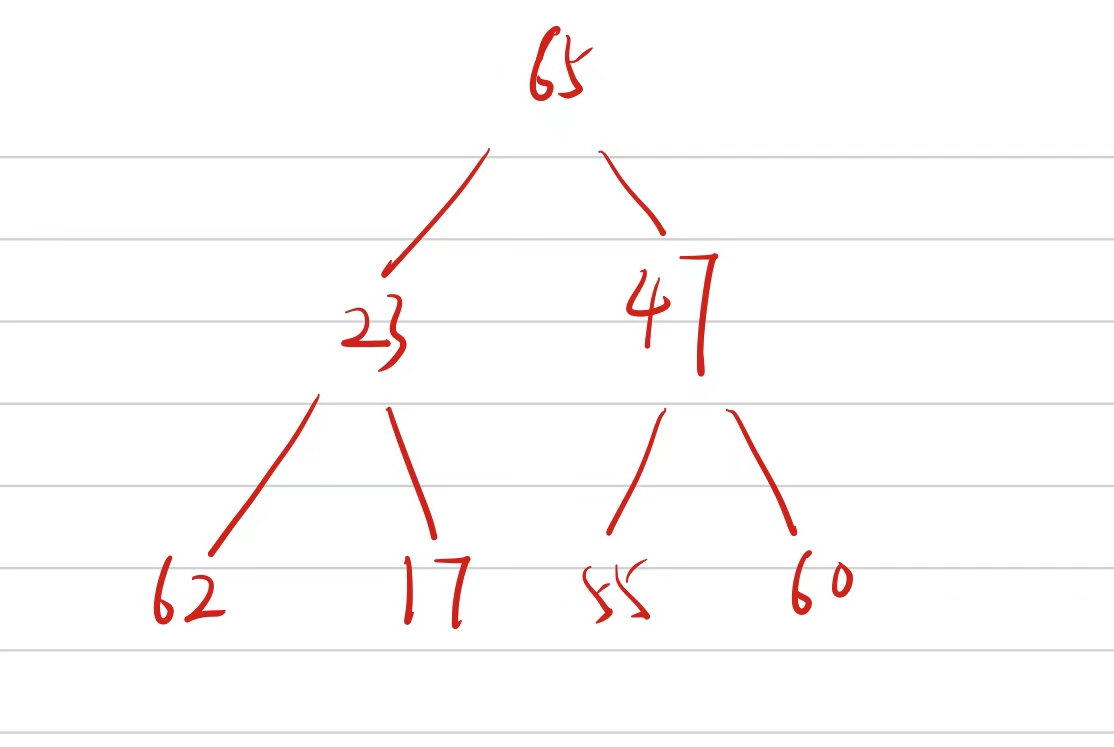 65
23 47
62 17 55 60